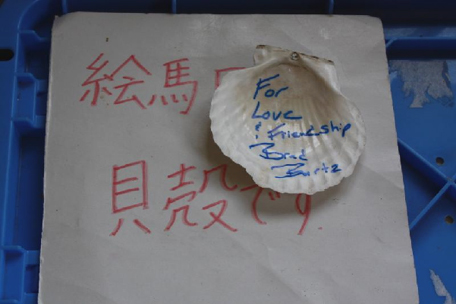 絵馬
貝殻です.
For
Love
& Friendship
Brad
Bartz